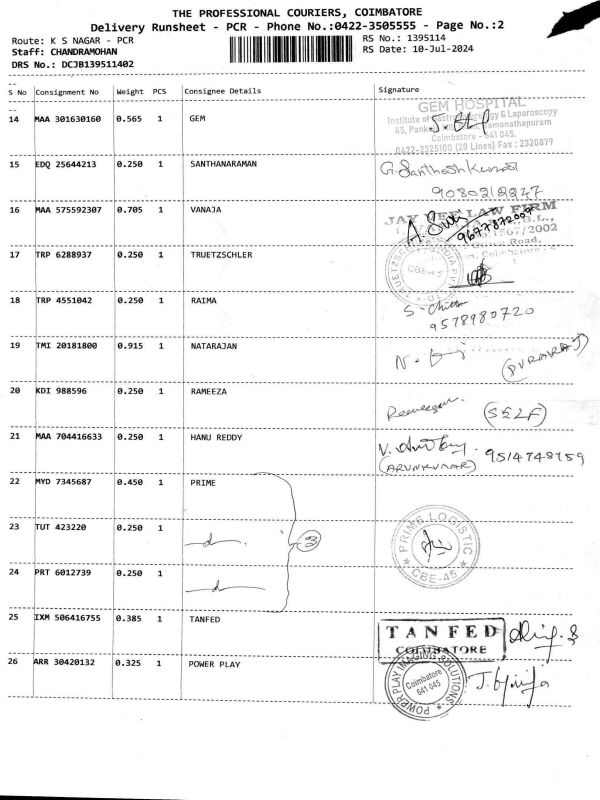 THE PROFESSIONAL COURIERS, COIMBATORE
Delivery Runsheet - PCR - Phone No.:0422-3505555 - Page No.:2
Route: K S NAGAR - PCR
RS No.: 1395114
Staff: CHANDRAMOHAN
RS Date: 10-Jul-2024
DRS No.: DCJB139511402
S No Consignment No Weight PCS Consignee Details Signature
14 MAA 301630160 0.565 1 GEM
GEM HOSPITAL
Institute of Gastroenterology & Laparoscopy
45, Ramanathapuram
Coimbatore - 641 045.
0422-2325100 (20 Lines) Fax : 2320879
15 EDQ 25644213 0.250 1 SANTHANARAMAN
G. Santhosh Kumar
16 MAA 575592307 0.705 1 VANAJA
JAY VEE LAW FIRM
9677872007
17 TRP 6288937 0.250 1 TRUETZSCHLER
CBE-45
18 TRP 4551042 0.250 1 RAIMA
9578980720
19 TMI 20181800 0.915 1 NATARAJAN
20 KDI 988596 0.250 1 RAMEEZA
(SELF)
21 MAA 704416633 0.250 1 HANU REDDY
9514748159
(ARUNKUMAR)
22 MYD 7345687 0.450 1 PRIME
23 TUT 423220 0.250 1
3
PRIME LOGISTIC
CBE-45
24 PRT 6012739 0.250 1
25 IXM 506416755 0.385 1 TANFED
TANFED
COIMBATORE
26 ARR 30420132 0.325 1 POWER PLAY
POWER PLAY IMAGING SOLUTIONS
Coimbatore
641 045